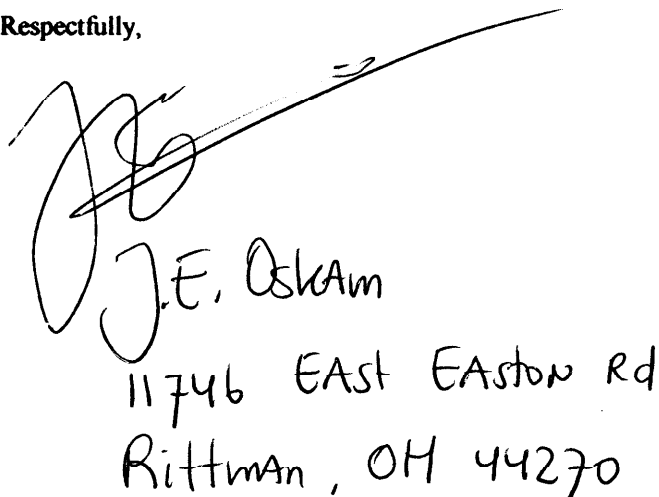 Respectfully,
J.E. Oskam
11746 East Easton Rd
Rittman, OH 44270